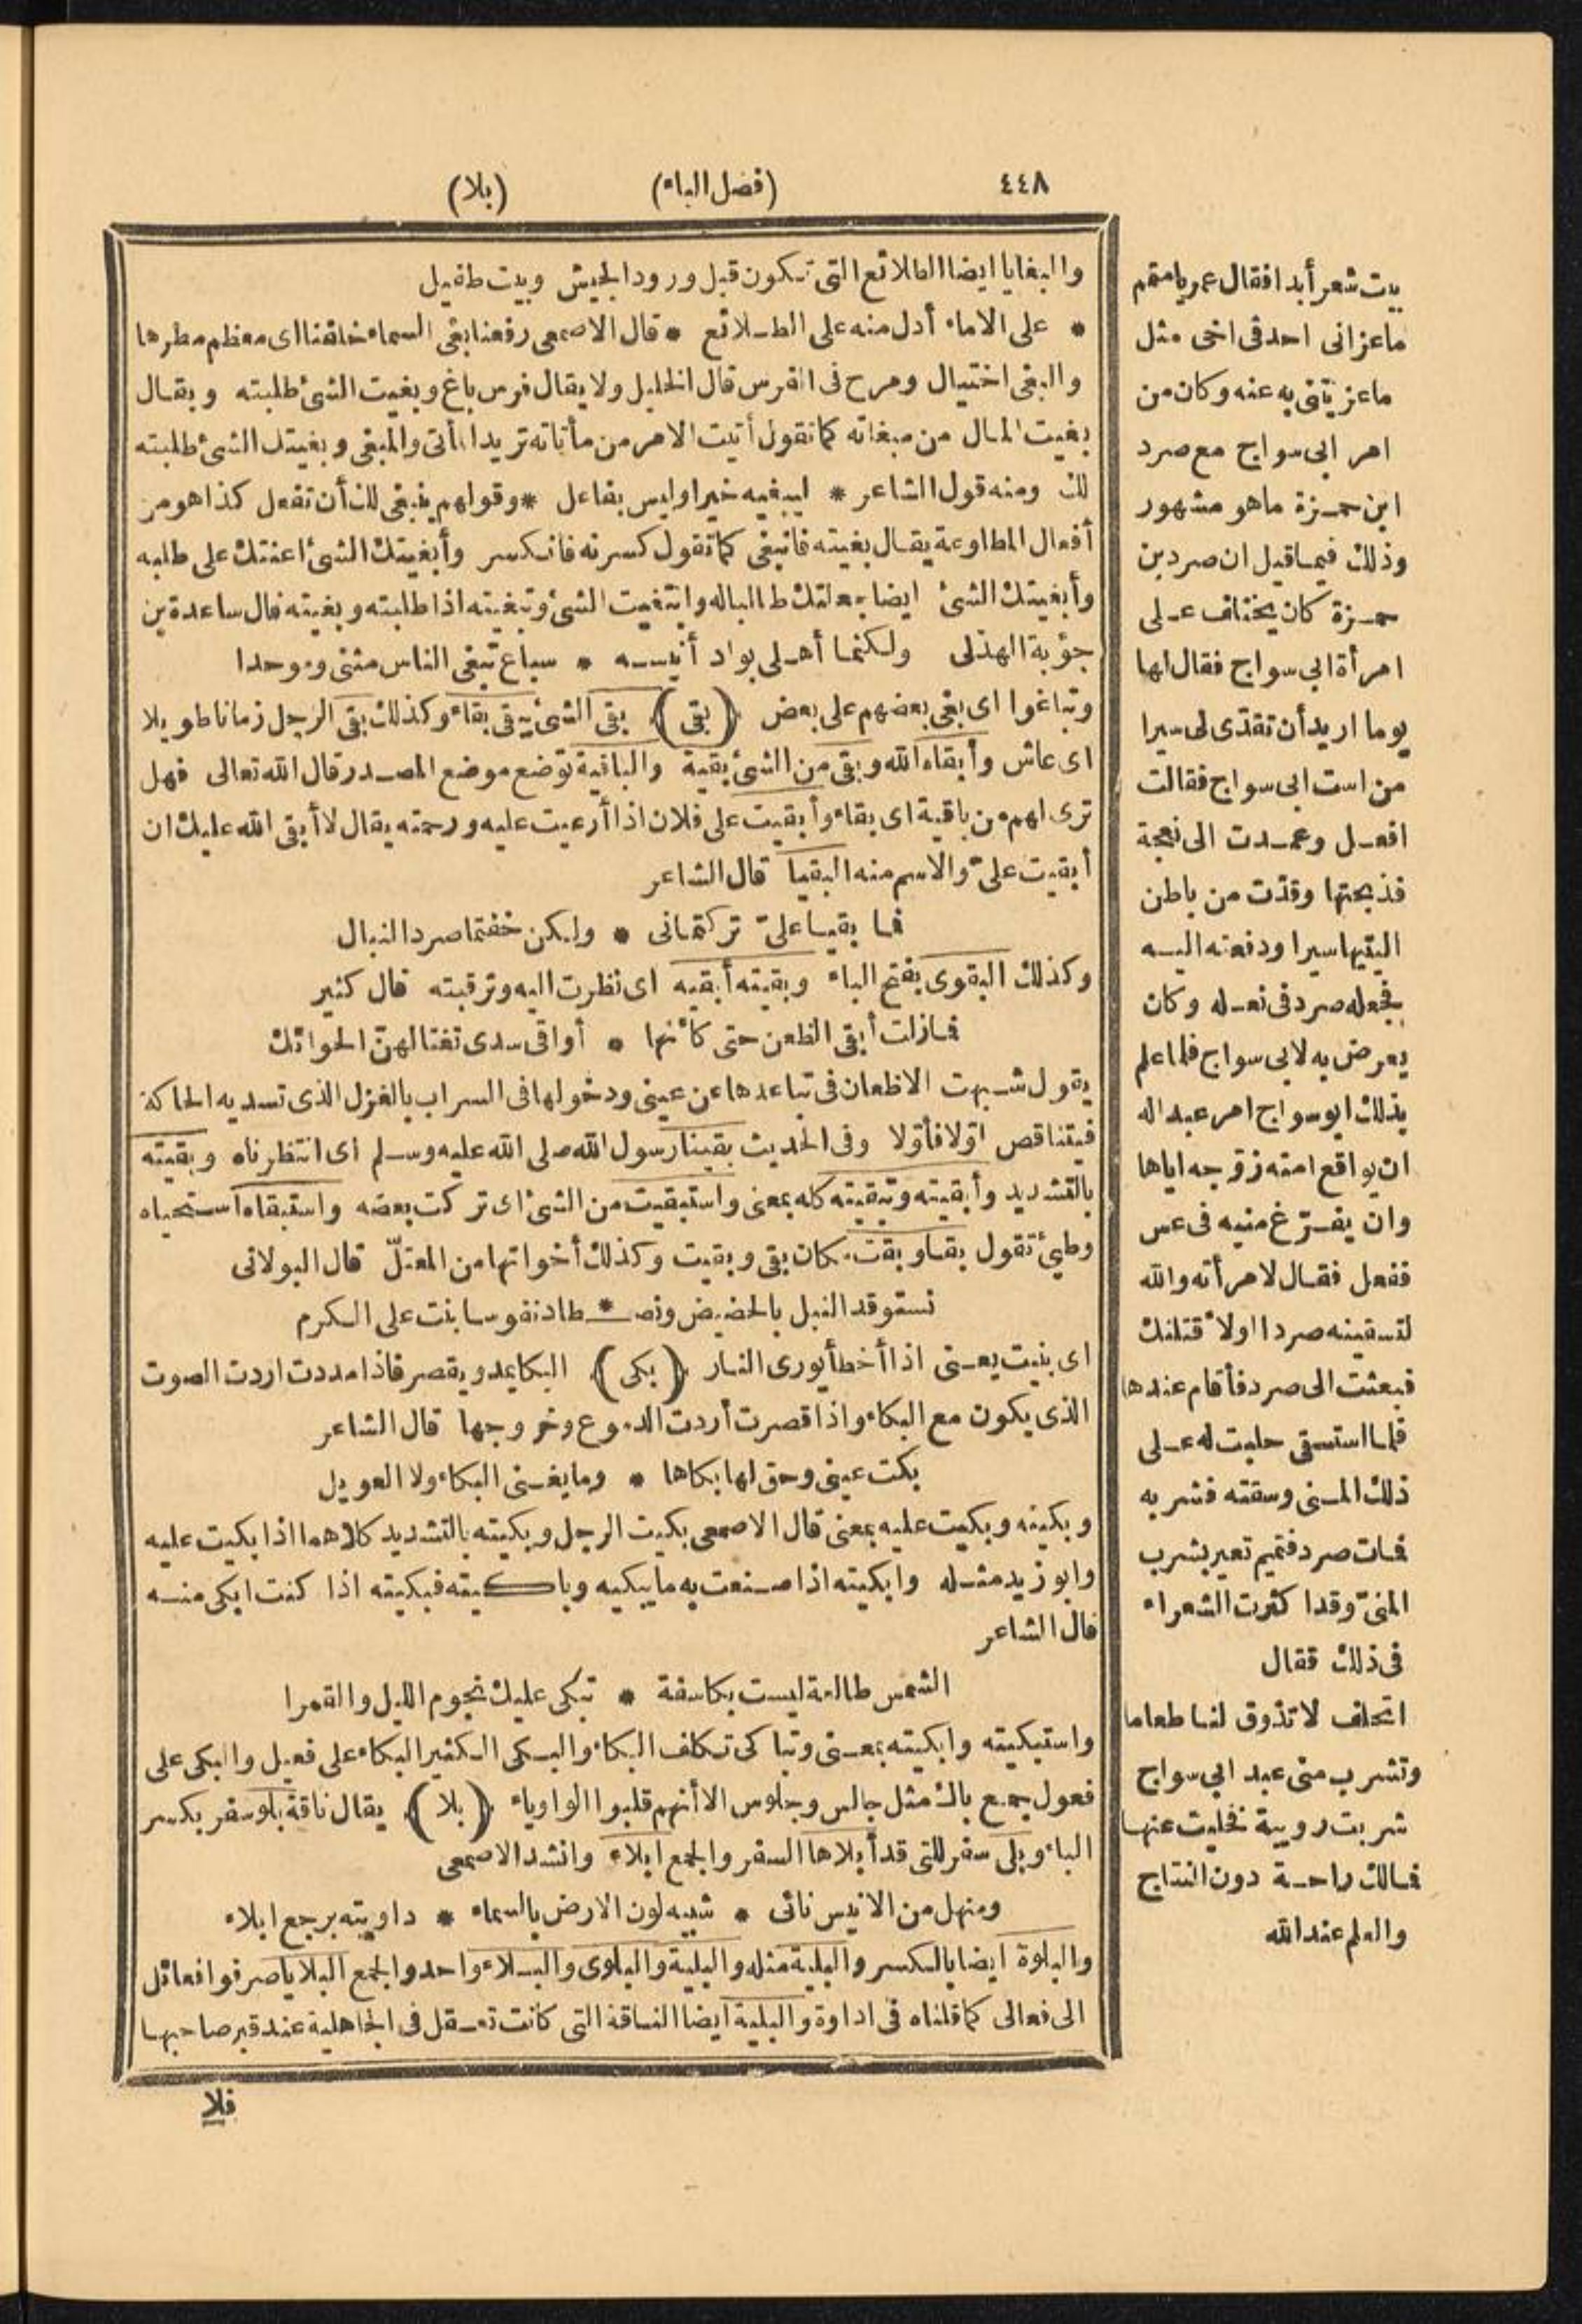 ٤٤٨ (فصل الباء) (بلا)
والبغايا ايضا الطلائع التى تكون قبل ورود الجيش وبيت طفيل
* على الاماء أدل منه على الطلائع * قال الاصمعى رفعنا بغى السماء خلفنا اى معظم مطرها
والبغى اختيال ومرح فى الفرس قال الخليل ولا يقال فرس باغ وبغيت الشئ طلبته ويقال
بغيت المال من مبغاته كما تقول أتيت الامر من مأتاته تريد المأتى والمبغى وبغيتك الشئ طلبته
لك ومنه قول الشاعر * ليبغيه خيرا وليس بفاعل * وقولهم ينبغى لك أن تفعل كذا هو من
أفعال المطاوعة يقال بغيته فانبغى كما تقول كسرته فانكسر وأبغيتك الشئ اعنتك على طلبه
وأبغيتك الشئ ايضا جعلتك طالبا له وابتغيت الشئ وتبغيته اذا طلبته وبغيته قال ساعدة بن
جؤية الهذلى ولكنما أهلى بواد أنيسه * سباع تبغى الناس مثنى وموحدا
وتباغوا اى بغى بعضهم على بعض (بقى) بقى الشئ يبقى بقاء وكذلك بقى الرجل زمانا طويلا
اى عاش وأبقاه الله وبقى من الشئ بقية والباقية توضع موضع المصدر قال الله تعالى فهل
ترى لهم من باقية اى بقاء وأبقيت على فلان اذا أرعيت عليه ورحمته يقال لا أبقى الله عليك ان
أبقيت علىّ والاسم منه البقيا قال الشاعر
فما بقيا علىّ تركتمانى * ولكن خفتما صرد النبال
وكذلك البقوى بفتح الباء وبقيته أبقيه اى نظرت اليه وترقبته قال كثير
فما زلت أبقى الظعن حتى كأنها * أواقى سدى تغتالهنّ الحوائك
يقول شبهت الاظعان فى تباعدها عن عينى ودخولها فى السراب بالغزل الذى تسديه الحاكة
فيتناقص اوّلا فأوّلا وفى الحديث بقينا رسول الله صلى الله عليه وسلم اى انتظرناه وبقيته
بالتشديد وأبقيته وتبقيته كله بمعنى واستبقيت من الشئ اى تركت بعضه واستبقاه استحياه
وطيئ تقول بقا وبقت مكان بقى وبقيت وكذلك أخواتها من المعتلّ قال البولانى
نستوقد النبل بالحضيض ونصـ * طاد نفوسا بنت على الكرم
اى بنيت يعنى اذا أخطأ يورى النار (بكى) البكا يمد ويقصر فاذا مددت اردت الصوت
الذى يكون مع البكاء واذا قصرت أردت الدموع وخروجها قال الشاعر
بكت عينى وحق لها بكاها * وما يغنى البكاء ولا العويل
وبكيته وبكيت عليه بمعنى قال الاصمعى بكيت الرجل وبكيته بالتشديد كلاهما اذا بكيت عليه
وابو زيد مثله وابكيته اذا صنعت به ما يبكيه وباكيته فبكيته اذا كنت ابكى منه
قال الشاعر
الشمس طالعة ليست بكاسفة * تبكى عليك نجوم الليل والقمرا
واستبكيته وابكيته بمعنى وتباكى تكلف البكاء والبكى الكثير البكاء على فعيل والبكى على
فعول جمع باك مثل جالس وجلوس الا أنهم قلبوا الواو ياء (بلا) يقال ناقة بلو سفر بكسر
الباء وبلى سفر للتى قد أبلاها السفر والجمع ابلاء وانشد الاصمعى
ومنهل من الانيس نائى * شبيه لون الارض بالسماء * داويته برجع ابلاء
والبلوة ايضا بالكسر والبلية مثله والبلية والبلوى والبلاء واحد والجمع البلايا صرفوا فعائل
الى فعالى كما قلناه فى اداوة والبلية ايضا الناقة التى كانت تعقل فى الجاهلية عند قبر صاحبها
فلا
بيت شعر أبدا فقال عمر يا متمم
ما عزانى احد فى اخى مثل
ما عزيتنى به عنه وكان من
امر ابى سواج مع صرد
ابن حمزة ما هو مشهور
وذلك فيما قيل ان صرد بن
حمزة كان يختلف على
امرأة ابى سواج فقال لها
يوما اريد أن تقدّى لى سيرا
من است ابى سواج فقالت
افعل وعمدت الى نعجة
فذبحتها وقدّت من باطن
اليتيها سيرا ودفعته اليه
فجعله صرد فى نعله وكان
يعرض به لابى سواج فلما علم
بذلك ابو سواج امر عبدا له
ان يواقع امته زوّجه اياها
وان يفرّغ منيه فى عس
ففعل فقال لامرأته والله
لتسقينه صردا اولاقتلنك
فبعثت الى صرد فأقام عندها
فلما استسقى حلبت له على
ذلك المنى وسقته فشربه
فمات صرد فتميم تعير بشرب
المنىّ وقد اكثرت الشعراء
فى ذلك فقال
اتحلف لا تذوق لنا طعاما
وتشرب منى عبد ابى سواج
شربت روية فخليت عنها
فمالك راحة دون النتاج
والعلم عند الله